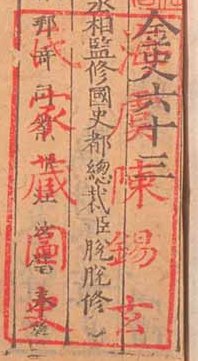 金史六十三
丞相監修國史都總裁臣脫脫修
海虞陳錫玄
氏家藏圖書